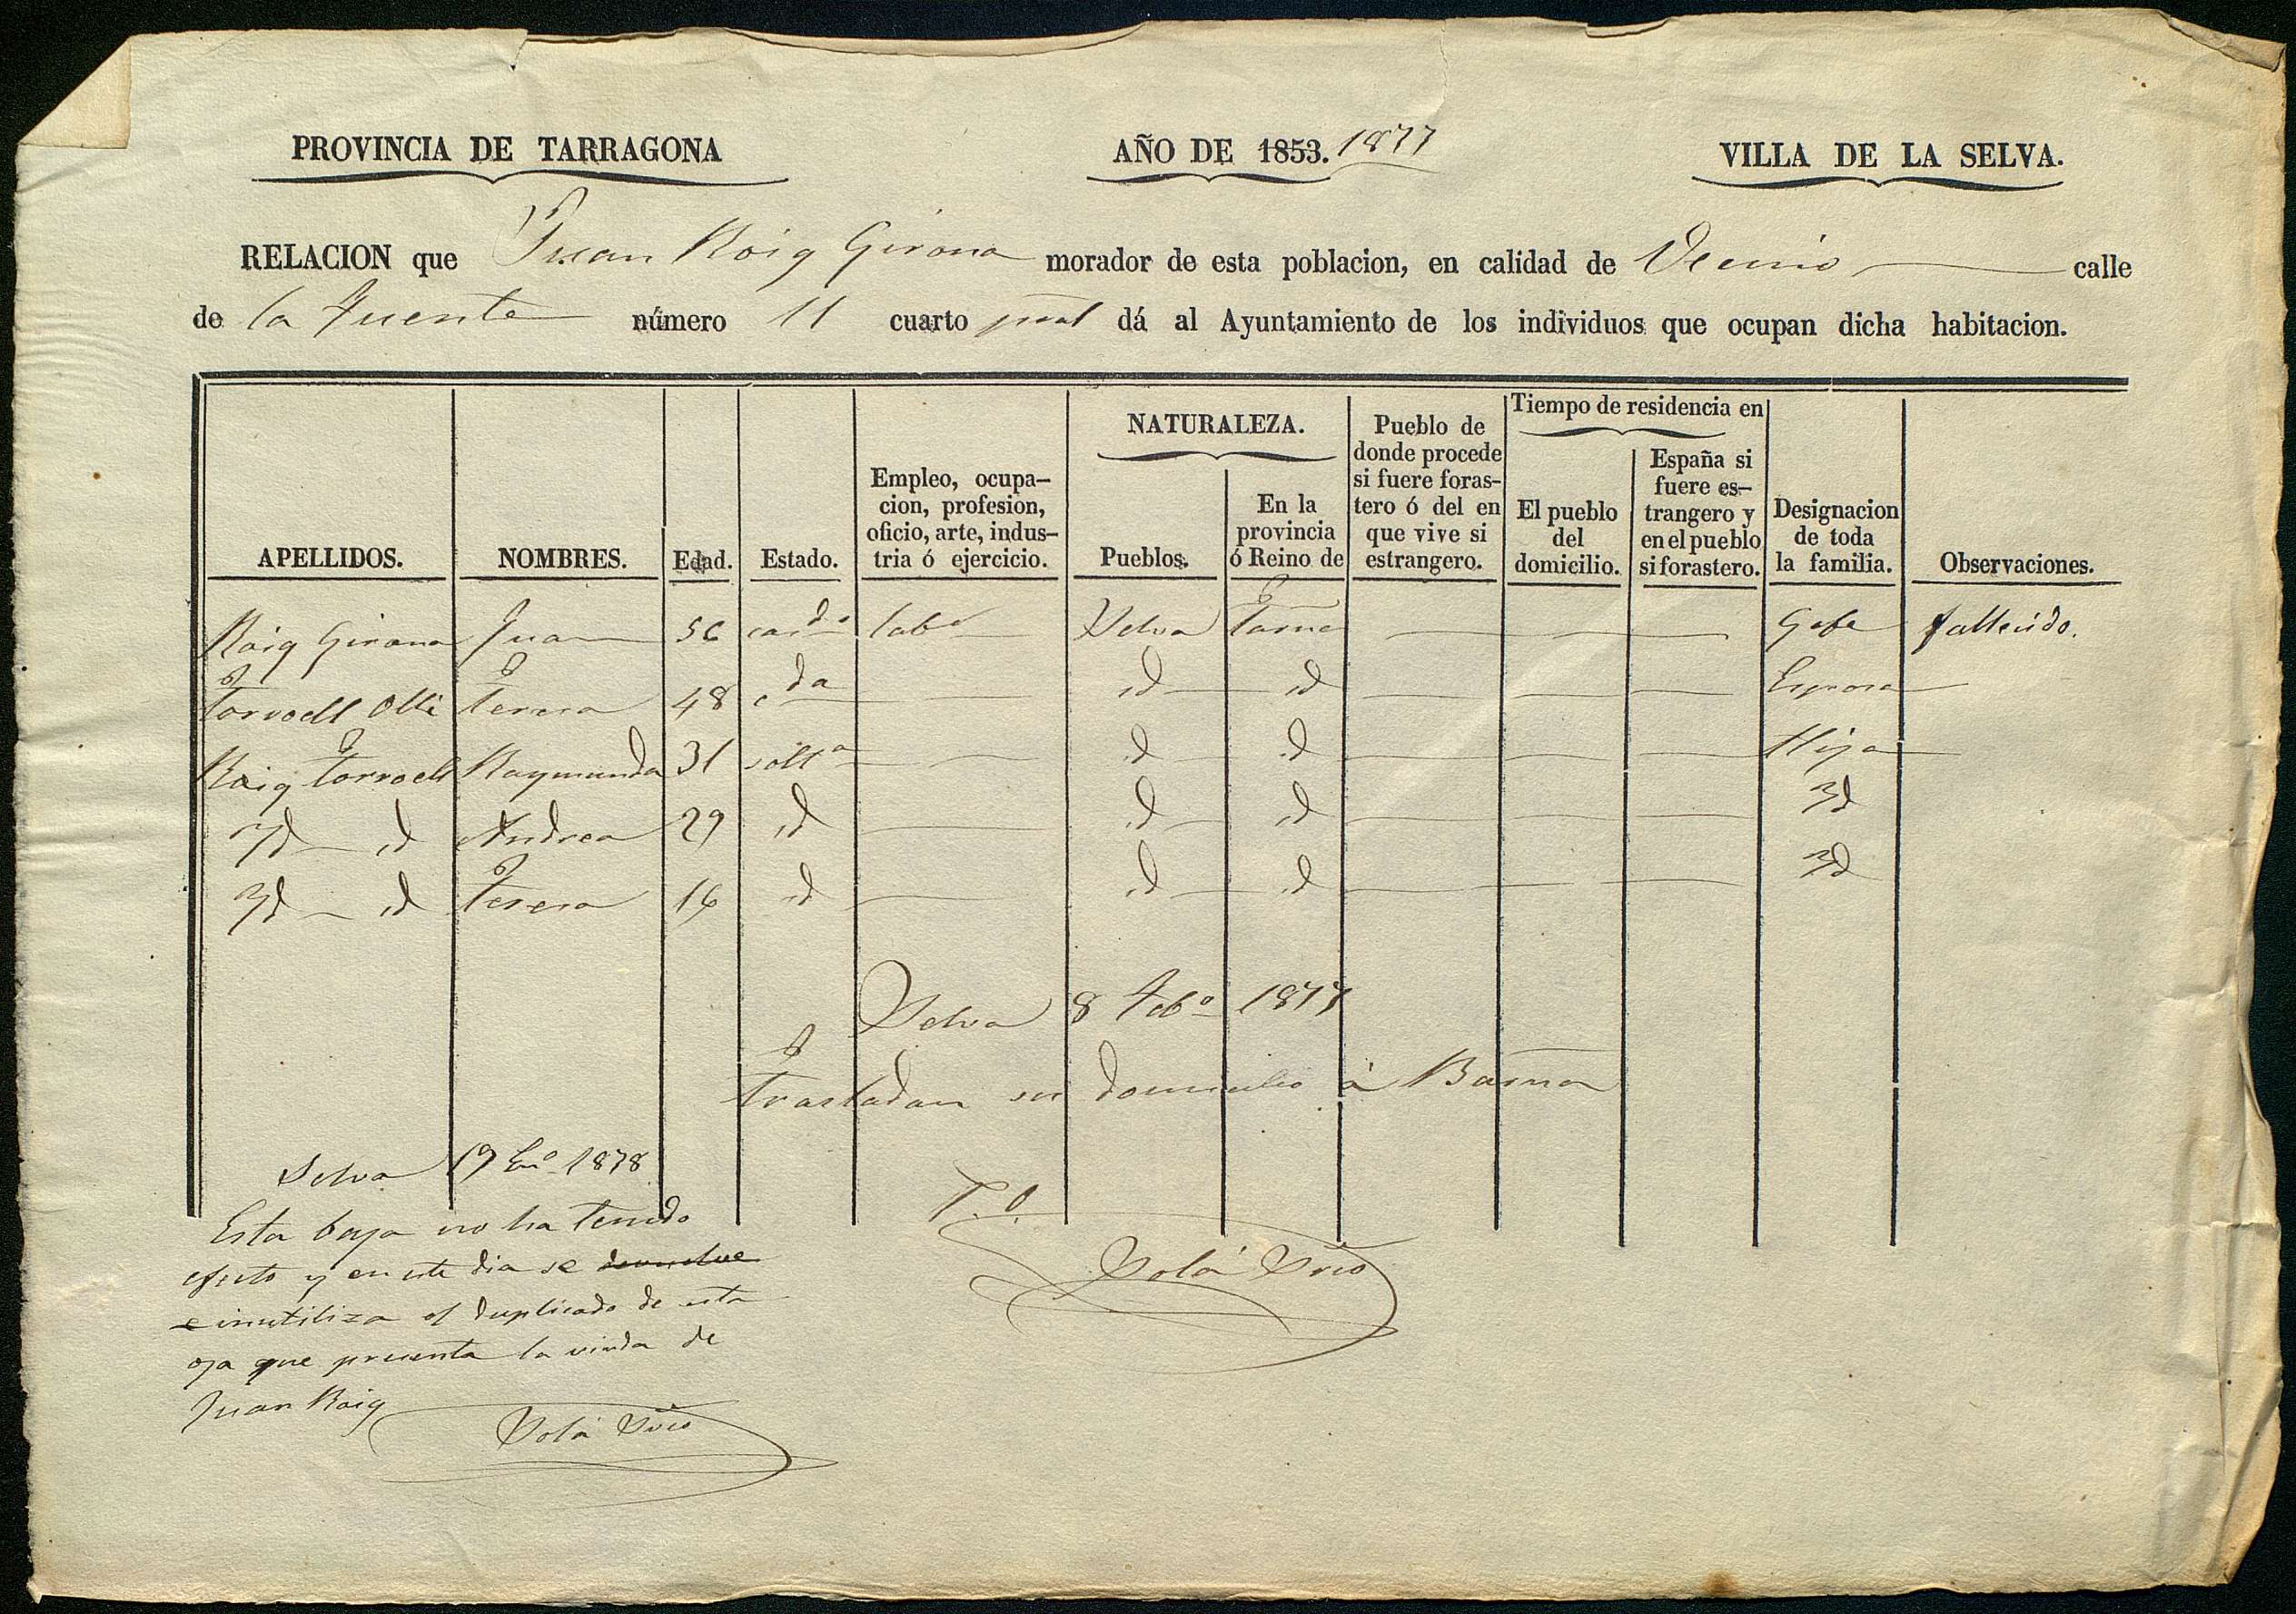 PROVINCIA DE TARRAGONA AÑO DE 1853. 1877 VILLA DE LA SELVA.
RELACION que Juan Roig Girona morador de esta poblacion, en calidad de Vecino calle
de la Fuente número 11 cuarto pral dá al Ayuntamiento de los individuos que ocupan dicha habitacion.
APELLIDOS. NOMBRES. Edad. Estado. Empleo, ocupa-cion, profesion, oficio, arte, indus-tria ó ejercicio. NATURALEZA. Pueblos. En la provincia ó Reino de Pueblo de donde procede si fuere foras-tero ó del en que vive si estrangero. Tiempo de residencia en El pueblo del domicilio. España si fuere es-trangero y en el pueblo si forastero. Designacion de toda la familia. Observaciones.
Roig Girona Juan 56 casdo labr Selva Tarna Gefe fallecido.
Torroell Olle Teresa 48 cda id id Esposa
Roig Torroell Raymunda 31 solta id id Hija
Id id Andrea 29 id id id Id
Id id Teresa 16 id id id Id
Selva 8 Febo 1877
Trasladan su domicilio á Barna
Selva 19 Eno 1878
Esta baja no ha tenido
efecto y en este dia se devuelve
e inutiliza el duplicado de esta
oja que presenta la viuda de
Juan Roig
Solá Srio
P. O.
Solá Srio